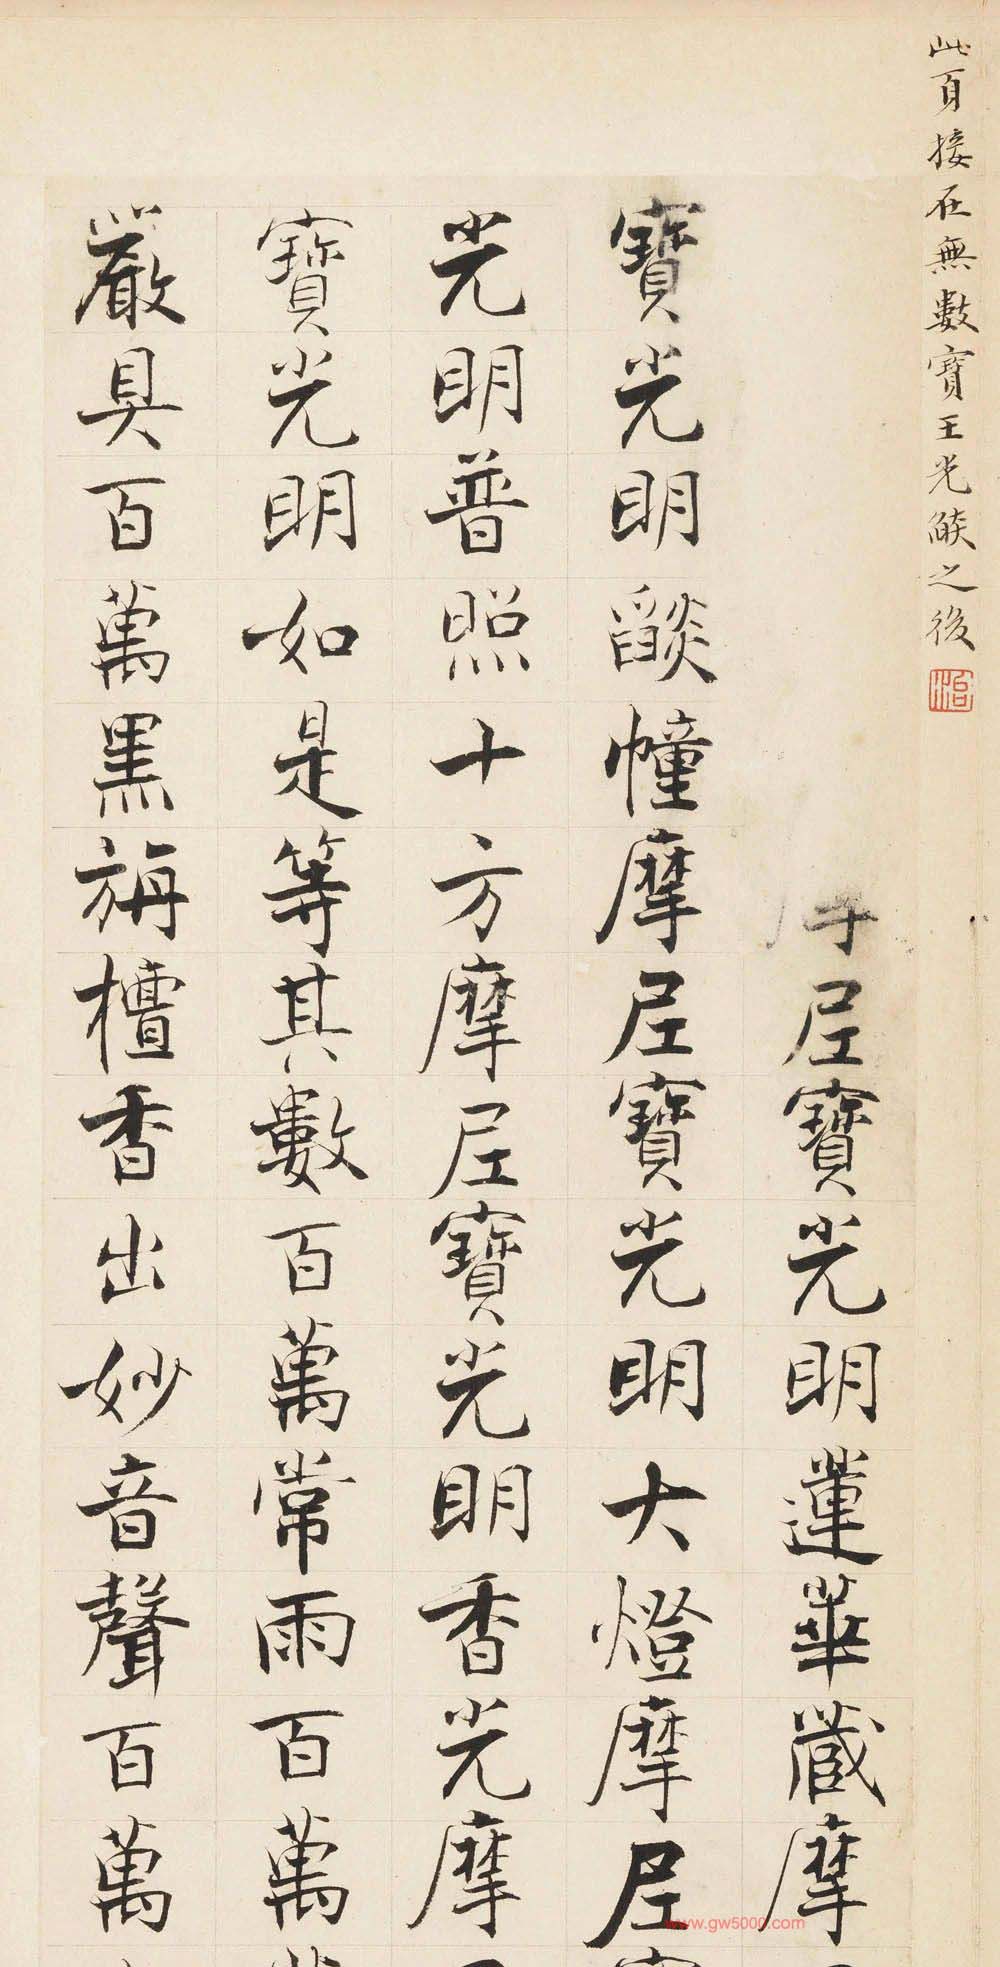 此頁接在無數寶王光燄之後
摩尼寶光明蓮華藏摩
寶光明燄幢摩尼寶光明大燈摩尼
光明普照十方摩尼寶光明香光摩
寶光明如是等其數百萬常雨百萬
嚴具百萬黑栴檀香出妙音聲百萬
www.gw5000.com